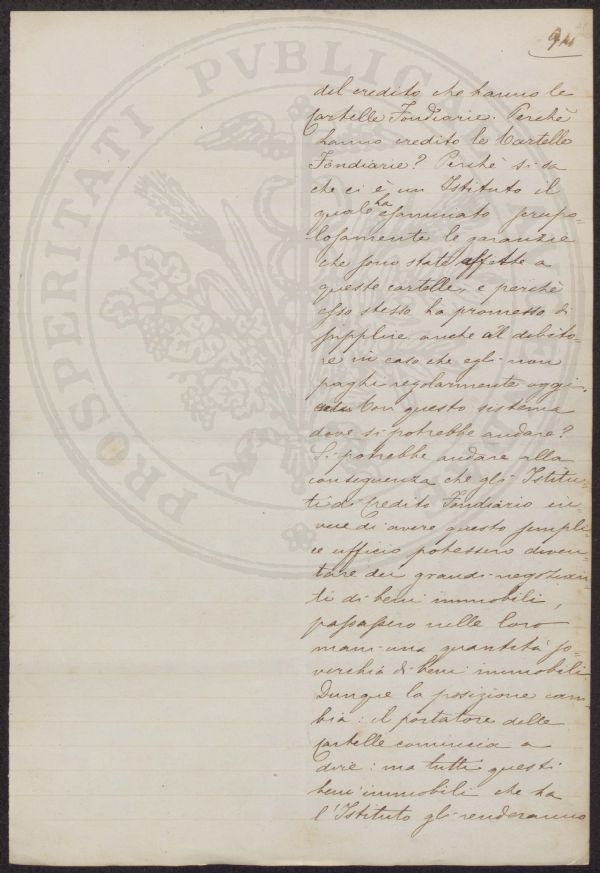 94
del credito che hanno le
Cartelle Fondiarie. Perchè
hanno credito le Cartelle
Fondiarie? Perchè si sa
che ci è un Istituto il
quale ha esaminato scrupo-
losamente le garanzie
che sono state affette a
queste cartelle, e perchè
esso stesso ha promesso di
supplire anche al debito-
re in caso che egli non
paghi regolarmente oggi
Con questo sistema
dove si potrebbe andare?
Si potrebbe andare alla
conseguenza che gli Istitu-
ti di Credito Fondiario in
vece di avere questo sempli-
ce ufficio potessero diven-
tare dei grandi negozian-
ti di beni immobili,
passassero nelle loro
mani una quantità so-
verchia di beni immobili
Dunque la posizione cam-
bia: il portatore delle
cartelle comincia a
dire: ma tutti questi
beni immobili che ha
l'Istituto gli renderanno
PROSPERITATI PVBLICAE